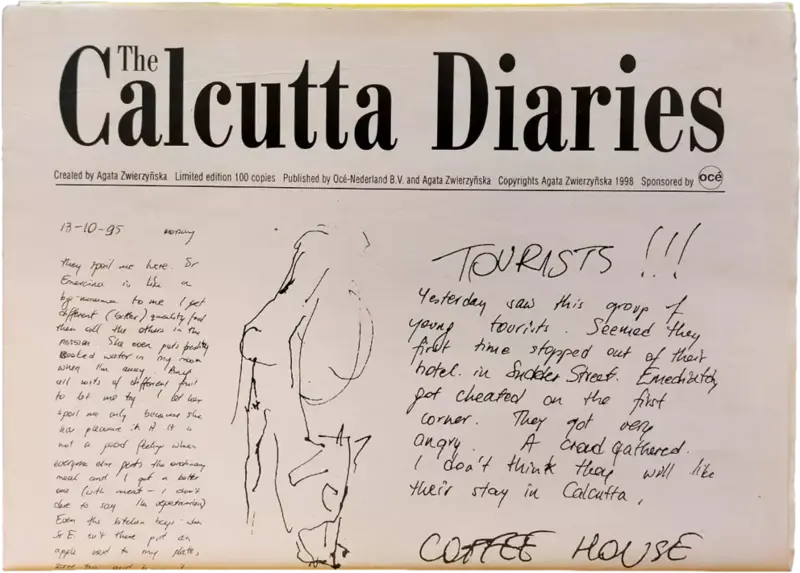 The
Calcutta Diaries
Created by Agata Zwierzyńska Limited edition 100 copies Published by Océ-Nederland B.V. and Agata Zwierzyńska Copyrights Agata Zwierzyńska 1998 Sponsored by océ
13-10-95 morning
they spoil me here. Sr
is like a
to me I get
different (better) quality food
then all the others in the
mission She even puts freshly
cooked water in my room
when I'm away. Buys
all sorts of different fruit
to let me try I let her
spoil me only because she
has pleasure in it It is
not a good feeling when
everyone else gets the ordinary
meal and I get a better
one (with meat – I don't
dare to say I'm vegetarian)
Even the kitchen boys when
Sr E. isn't there put an
apple next to my plate,
TOURISTS !!!
Yesterday saw this group of
young tourists. Seemed they
first time stopped out of their
hotel in Sudder Street. Emediately
got cheated on the first
corner. They got very
angry. A crowd gathered.
I don't think they will like
their stay in Calcutta,
COFFEE HOUSE